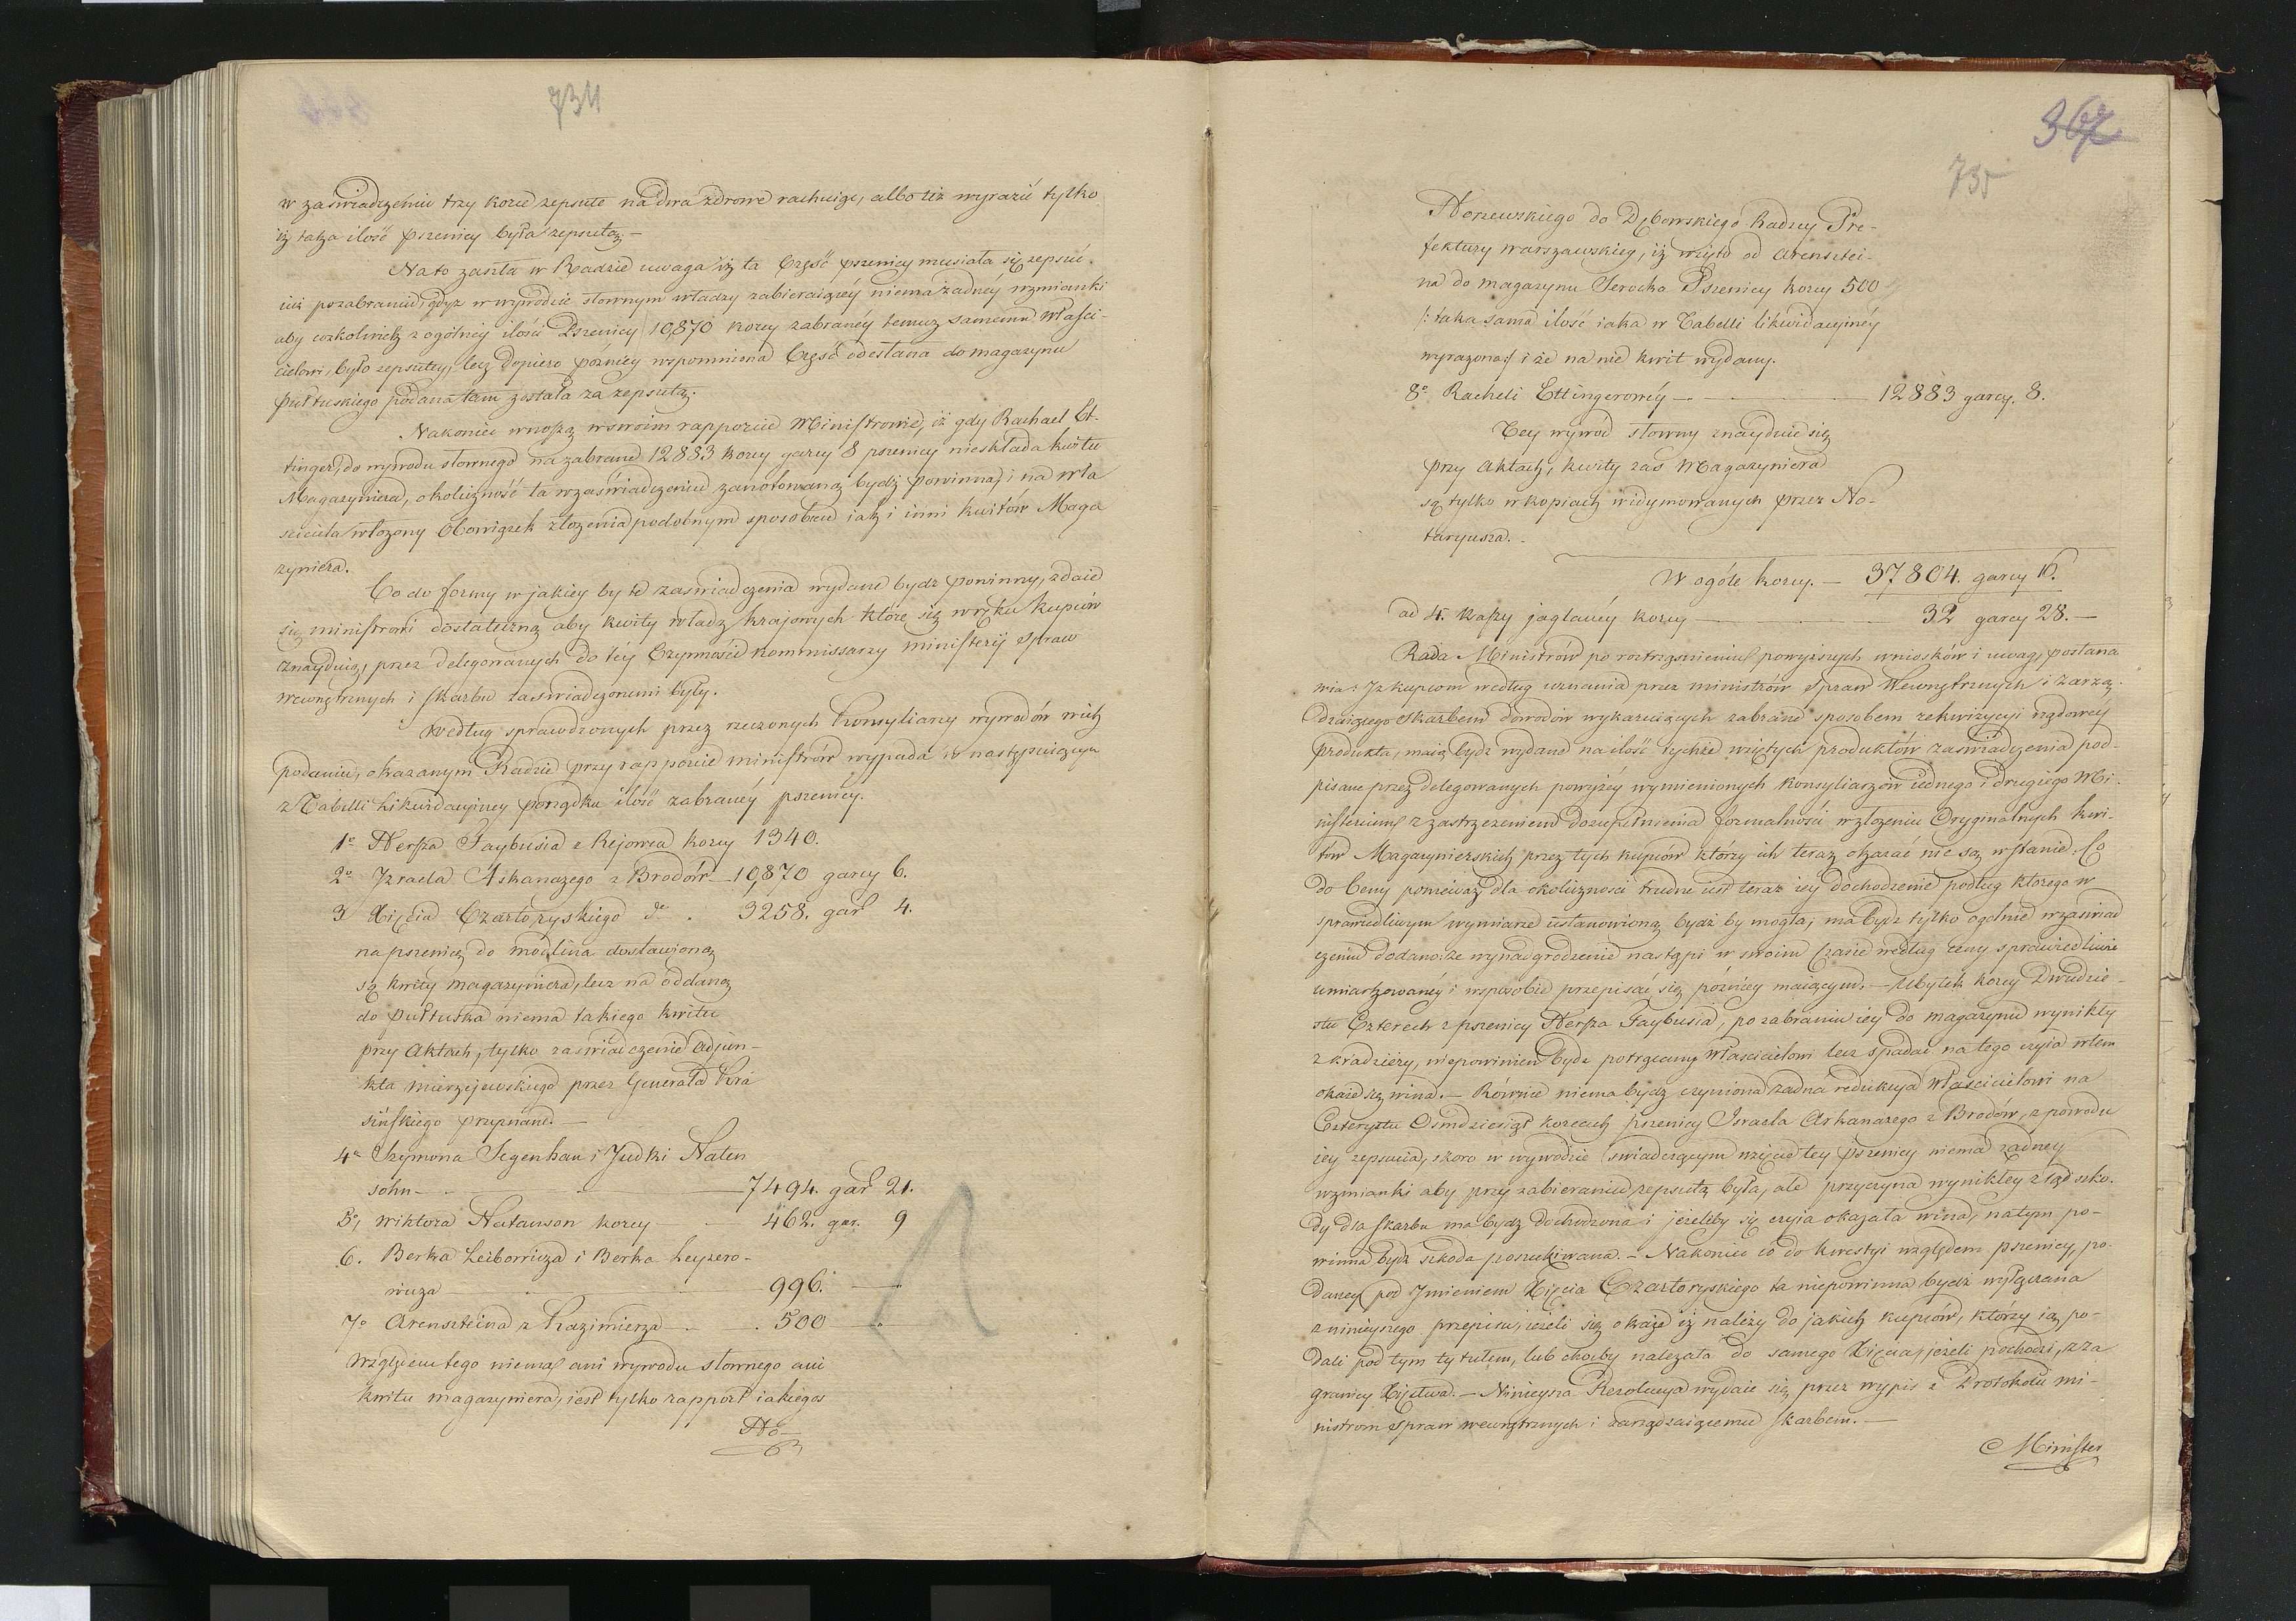 734
w zaświadczeniu trzy korce zepsute na dwa zdrowe rachuiąc, albo też wyrazić tylko
iż taka ilość pszenicy była zepsutą. —
Na to zaszła w Radzie uwaga iż ta część pszenicy musiała się zepsuć
już po zabraniu, gdyż w wywodzie słownym władzy zabieraiącéy niema żadnéy wzmianki
aby cożkolwiek z ogólnéy ilości Pszenicy 10,870 korcy zabranéy temuż samemu właści-
cielowi, było zepsutey, lecz dopiero późniey wspomniona część odesłana do magazynu
Pułtuskiego podana tam została za zepsutą.
Nakoniec wnoszą w swoim rapporcie Ministrowie, iż gdy Rachael Et-
tinger, do wywodu słownego na zabrane 12883 korcy garcy 8 pszenicy nieskłada kwitu
Magazyniera, okoliczność ta w zaświadczeniu zanotowaną bydź powinna, i na wła
ściciela włożony Obowiązek złożenia podobnym sposobem iak i inni kwitów Maga
zyniera.
Co do formy w jakiey by te zaświadczenia wydane bydź powinny, zdaie
się ministrowi dostateczną aby kwity władz krajowych które się w ręku kupców
znayduią, przez delegowanych do téy Czynności kommissarzy ministeryi Spraw
wewnętrznych i skarbu zaświadczonemi były.
Według sprawdzonych przez rzeczonych Konsyliarzy wywodów w ich
podaniu, okazanym Radzie przy rapporcie ministrów wypada w następuiącym
z Tabelli Likwidacyiney porządku ilość zabranéy pszenicy.
1o Herszka Faybusia z Rejowca korcy 1340.
2o Izraela Askanazego z Brodów — 10,870 garcy 6.
3 Xięcia Czartoryskiego do . 3258. gar 4.
na pszenicę do modlina dostawioną
są kwity magazyniera, lecz na oddaną
do Pułtuska niema takiego kwitu
przy Aktach, tylko zaświadczenie Adjun-
kta mierzejewskiego przez Generała Kra
sińskiego przyznane. —
4o Szymona Segenhau i Judki Naten
sohn — 7494. gar 21.
5o, Wiktora Natanson korcy — 462. gar. 9
6. Berka Leibowicza i Berka Leyzero-
wicza — 996. —
7o Arensteina z Kazimierza . 500 —
Względem tego niemasz ani wywodu słownego ani
kwitu magazyniera, iest tylko rapport iakiegoś
No-
367
735
Norzewskiego do Dębowskiego Radzcy Pre-
fektury warszawskiey, iż wzięto od Arensztei-
na do magazynu Serocka Pszenicy korcy 500
/: taka sama ilość iaka w Tabelli likwidacyinéy
wyrażona :/ i że na nie kwit wydany.
8o Racheli Ettingerowéy — 12883 garcy. 8.
Tey wywód słowny znayduie się
przy Aktach, kwity zaś Magazyniera
są tylko w kopiach widymowanych przez No-
taryusza. .
W ogóle korcy. — 37804. garcy 16.
ad 4. kaszy jaglanéy korcy — 32 garcy 28. —
Rada Ministrów po roztrząśnieniu powyższych wniosków i uwag, postana
wia: Iż kupcom według uznania przez ministrów Spraw Wewnętrznych i zarzą-
dzaiącego Skarbem dowodów wykazuiących zabrane sposobem rekwizycyi rządowéy
Produkta, maią bydź wydane na ilość tychże wziętych produktów zaświadczenia pod-
pisane przez delegowanych powyżéy wymienionych konsyliarzów iednego i drugiego Mi-
nisterium z zastrzeżeniem dozupełnienia formalności w złożeniu Oryginalnych kwi-
tów Magazynierskich przez tych kupców którzy ich teraz okazać nie są w stanie. Co
do Ceny ponieważ dla okoliczności trudne iest teraz iey dochodzenie podług którego w
sprawiedliwym wymiarze ustanowioną bydź by mogła, ma bydź tylko ogólnie w zaświad
czeniu dodano: że wynadgrodzenie nastąpi w swoim czasie według ceny sprawiedliwie
umiarkowanéy i w sposobie przepisać się późniéy maiącym. — Ubytek korcy Dwudzie-
stu Czterech z pszenicy Herszka Faybusia, po zabraniu iey do magazynu wynikły
z kradzieży, niepowinien bydź potrącany Właścicielowi lecz spadać na tego czyia w tem
okaże się wina. — Równie niema bydź czyniona żadna redukcya Właścicielowi na
Czterystu Osmdziesiąt korcach pszenicy Izraela Askanazego z Brodów, z powodu
iey zepsucia, skoro w wywodzie świadczącym wzięcie tey pszenicy niema żadney
wzmianki aby przy zabieraniu zepsutą była, ale przyczyna wynikłey ztąd szko-
dy dla skarbu ma bydź dochodzona i jeżeliby się czyia okazała wina, na tym po-
winna bydź szkoda poszukiwana. — Nakoniec co do kwestyi względem pszenicy, po-
daney pod Imieniem Xięcia Czartoryskiego ta niepowinna bydź wyłączana
z ninieyszego przepisu, ieżeli się okaże iż należy do jakich kupców, którzy ią po-
dali pod tym tytułem, lub choćby należała do samego Xięcia, jeżeli pochodzi, z za
granicy Xięstwa. — Ninieysza Rezolucya wydaie się przez wypis z Protokołu mi-
nistrom Spraw wewnętrznych i zarządzaiącemu skarbem. —
Minister